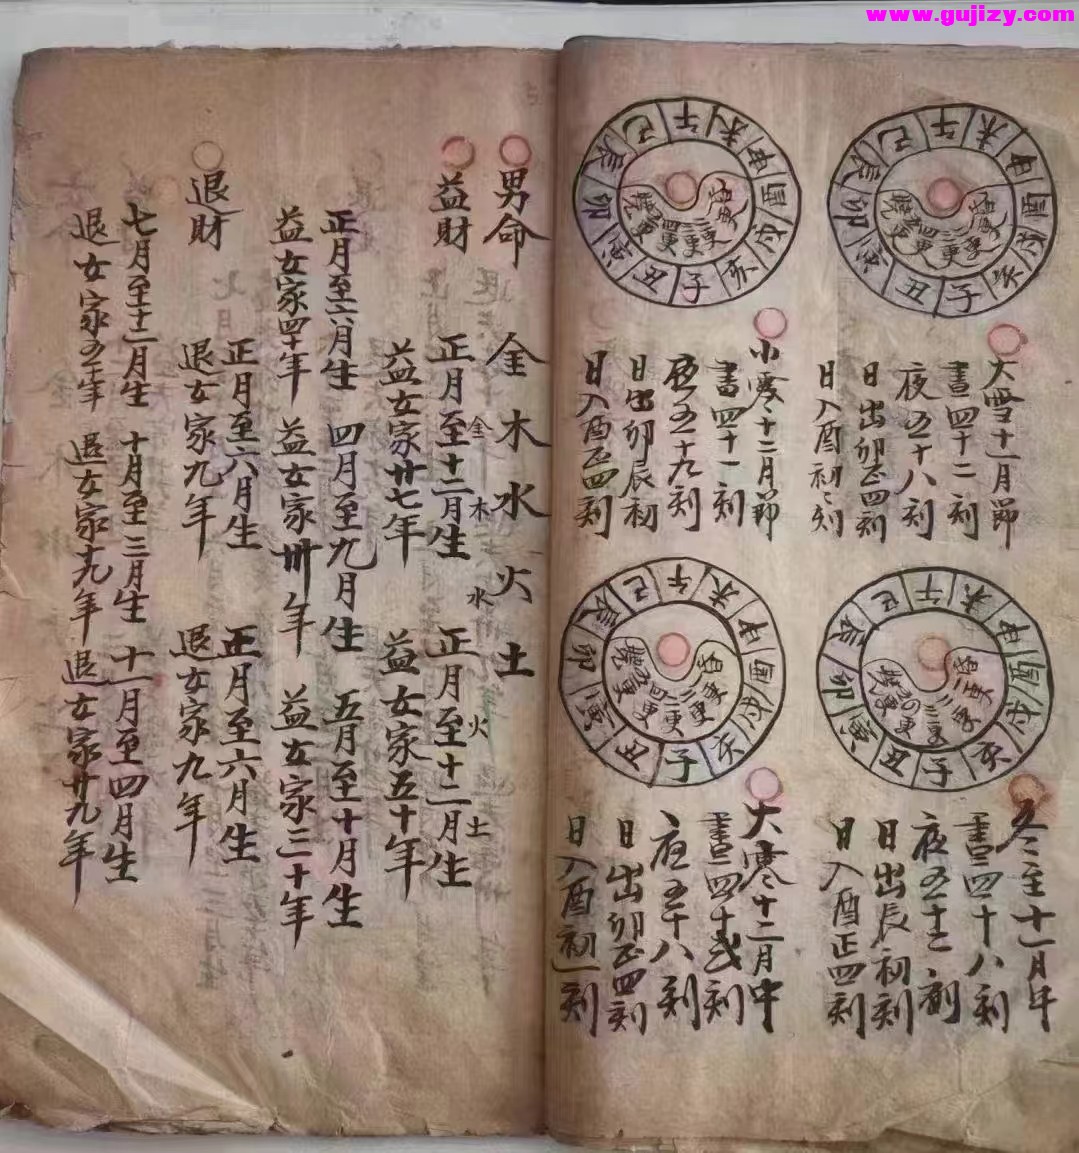 www.gujizy.com
午
未
申
酉
戌
亥
子
丑
寅
卯
辰
巳
大雪十一月節
晝四十二刻
夜五十八刻
日出卯正四刻
日入酉初刻
午
未
申
酉
戌
亥
子
丑
寅
卯
辰
巳
冬至十一月中
晝四十八刻
日出辰初刻
日入酉正四刻
午
未
申
酉
戌
亥
子
丑
寅
卯
辰
巳
小寒十二月節
晝四十一刻
夜五十九刻
日出卯辰初
日入酉正四刻
午
未
申
酉
戌
亥
子
丑
寅
卯
辰
巳
大寒十二月中
晝四十弍刻
夜五十八刻
日出卯正四刻
日入酉初一刻
男命 金木水火土
金 木 水 火 土
益財 正月至十二月生 正月至十二月生
益女家廿七年 益女家五十年
正月至六月生 四月至九月生 五月至十月生
益女家四十年 益女家卅年 益女家三十年
退財 正月至六月生 正月至六月生
退女家九年 退女家九年
七月至十二月生 十月至三月生 十一月至四月生
退女家五年 退女家十九年 退女家廿九年